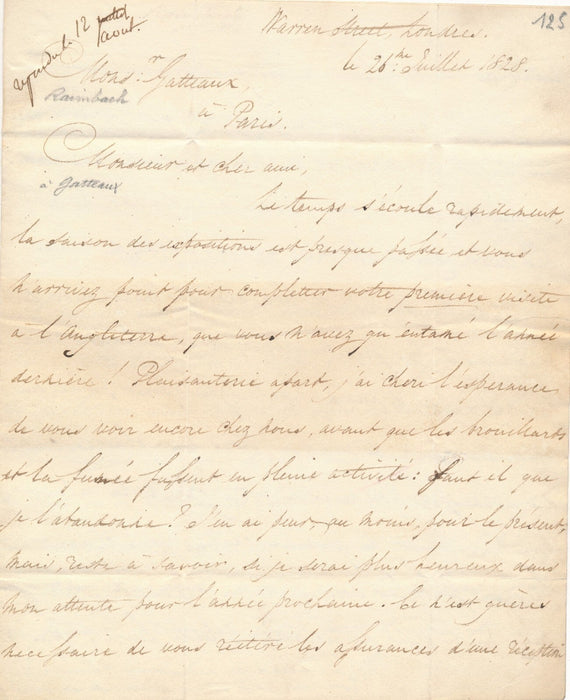 125
Warren Street, Londres.
le 26me Juillet 1828.
répondu le 12
août.
Monsr. Gatteaux,
Raimbach
à Paris.
Monsieur et cher ami,
à Gatteaux
Le temps s'écoule rapidement,
la saison des expositions est presque passée et vous
n'arrivez point pour completter votre première visite
a l'Angleterre, que vous n'avez qu'entamé l'année
dernière! Plaisanterie apart, j'ai cheri l'espérance
de vous voir encore chez nous, avant que les brouillards
et la fumée fussent en pleine activité: faut il que
je l'abandonne? J'en ai peur, au moins, pour le présent,
mais, reste à savoir, si je serai plus heureux dans
mon attente pour l'année prochaine. Ce n'est guères
necessaire de vous réitéré les assurances d'une réception